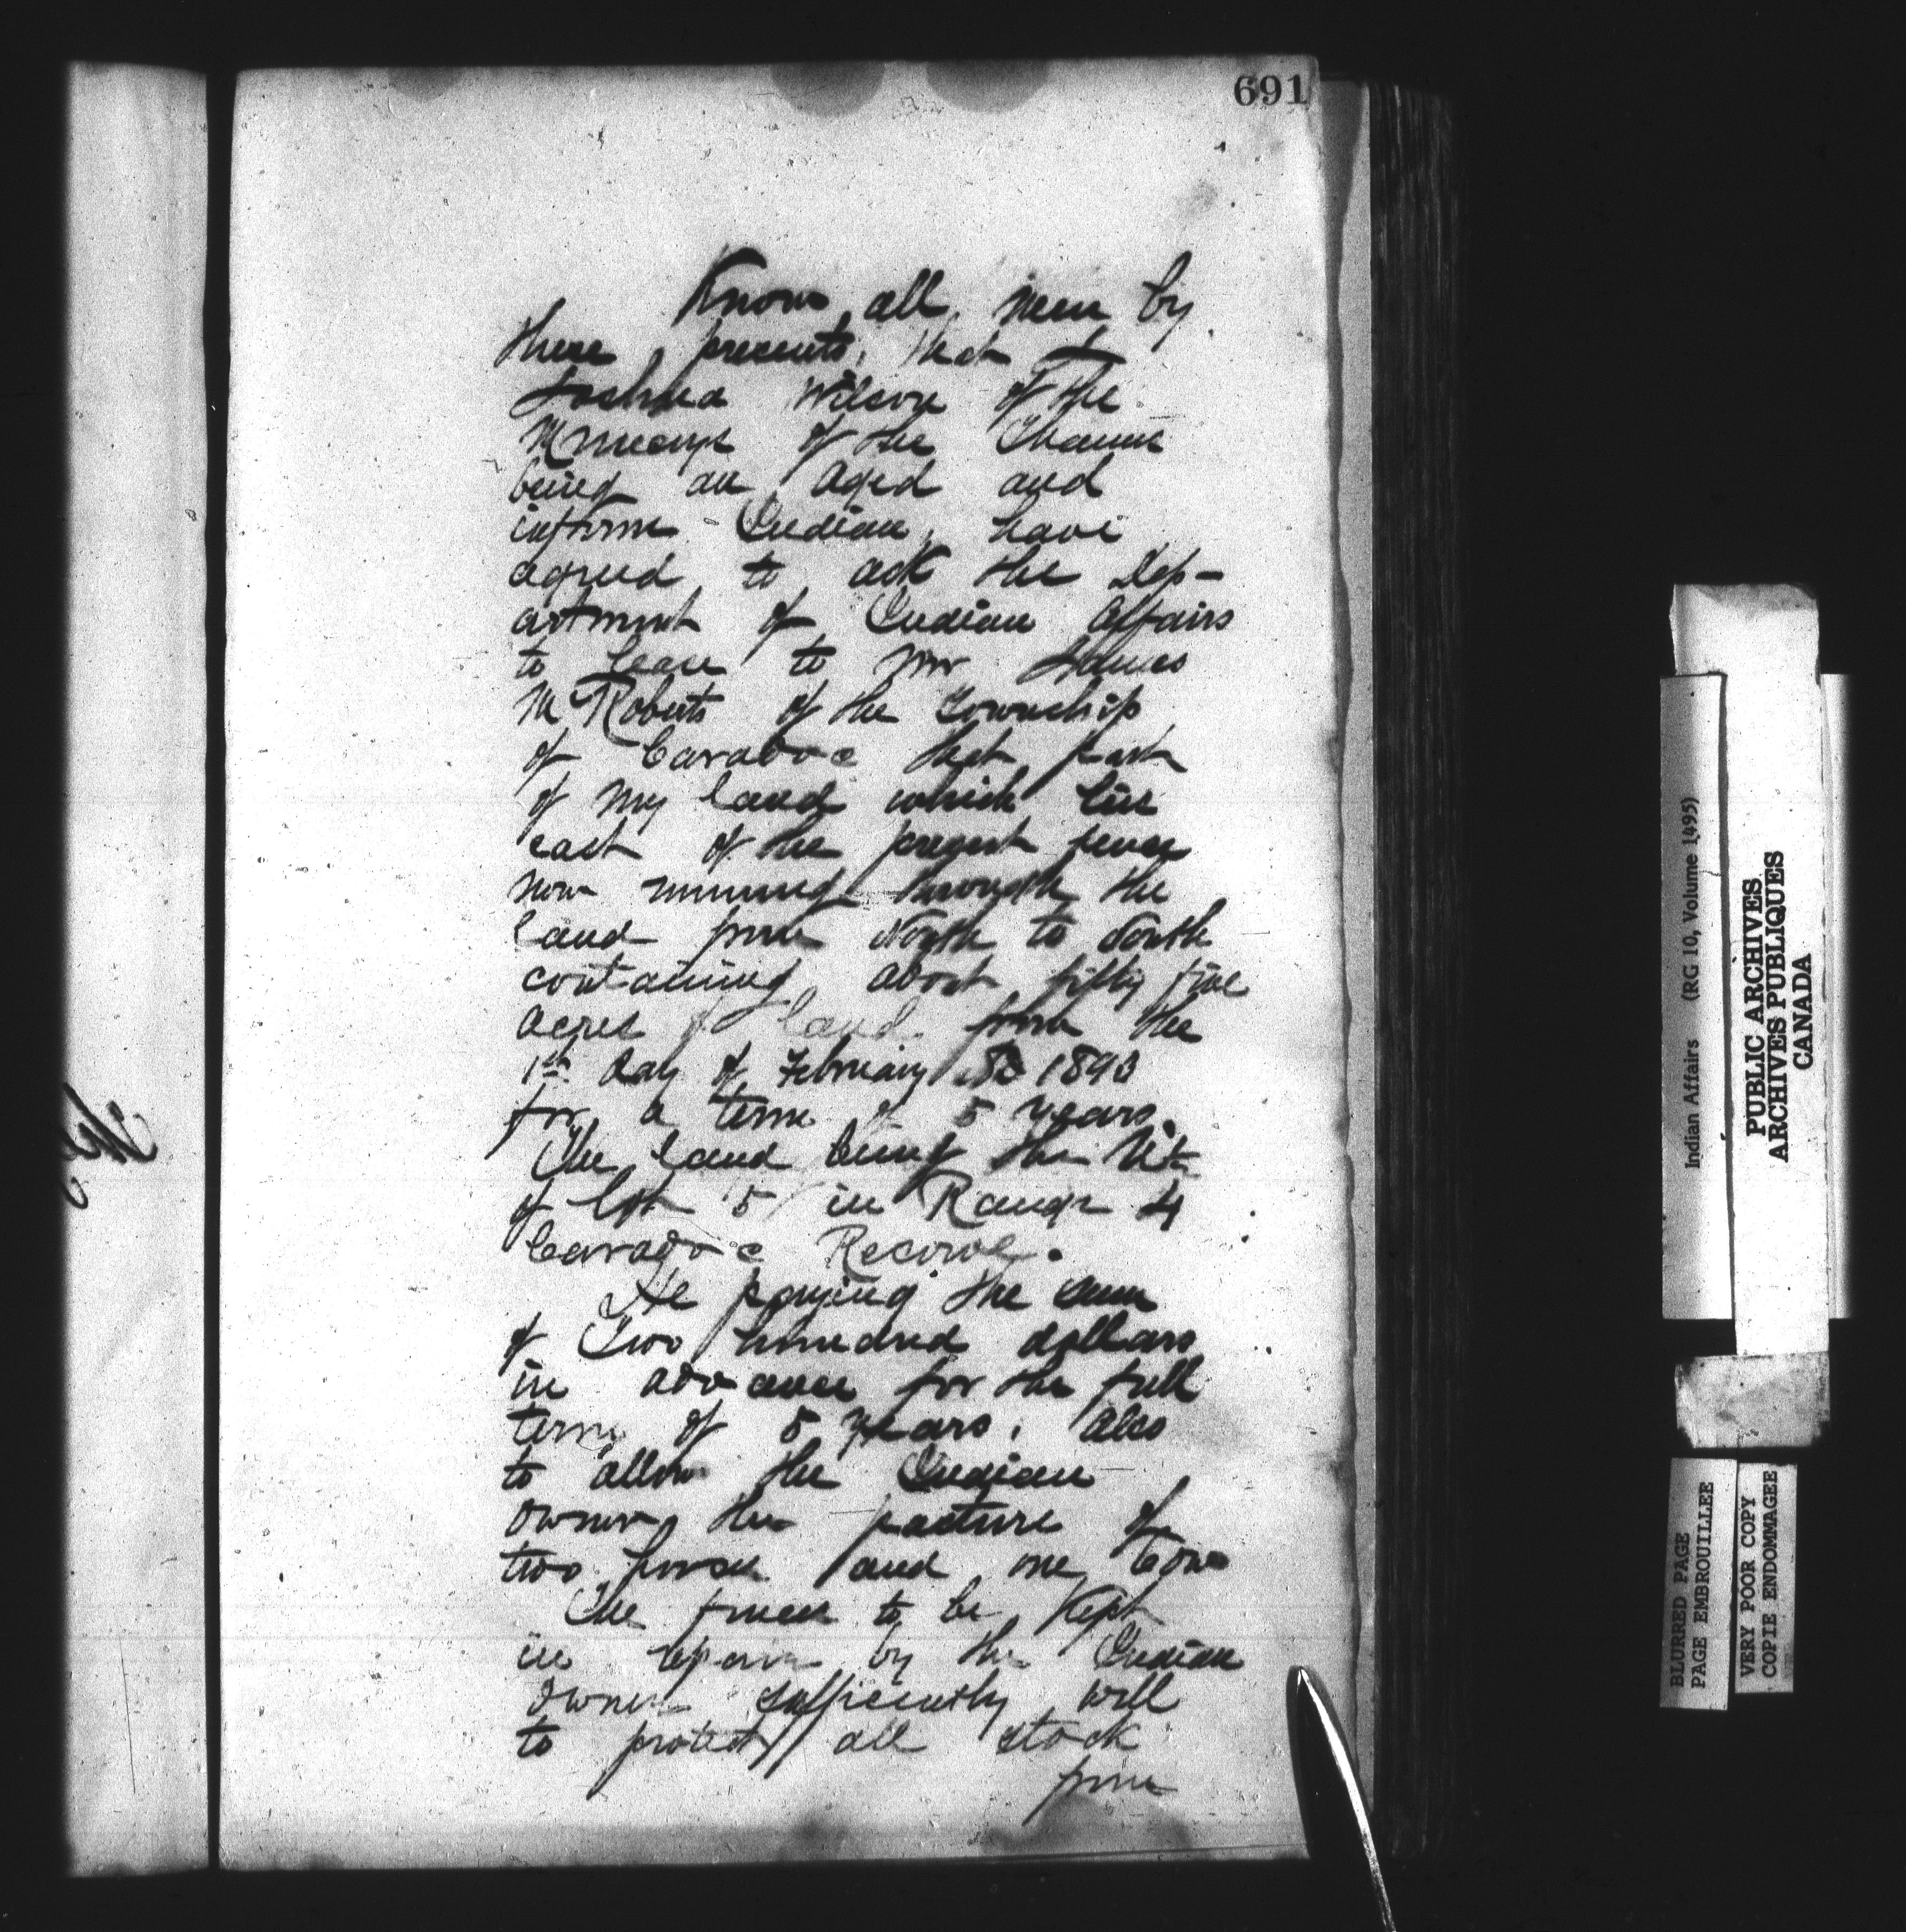 691
Know all men by
these presents, that I
Joshua Wilson of the
Munceys of the Thames
being an aged and
infirm Indian, have
agreed to ask the Dep-
artment of Indian Affairs
to lease to Mr James
McRoberts of the Township
of Caradoc that part
of my land which lies
east of the present fence
now running through the
land from North to South
containing about fifty five
acres of land from the
1st day of February 1893
for a term of 5 years.
The land being the
of lot 5 in Range 4
Caradoc Reserve.
He paying the sum
of Two hundred dollars
in advance for the full
term of 5 years, also
to allow the Indian
owner the pasture of
two horses and one Cow
The fences to be Kept
in repair by the Indian
owner sufficiently well
to protect all stock
from
Indian Affairs (RG 10, Volume 1495)
PUBLIC ARCHIVES
ARCHIVES PUBLIQUES
CANADA
BLURRED PAGE
PAGE EMBROUILLEE
VERY POOR COPY
COPIE ENDOMMAGEE